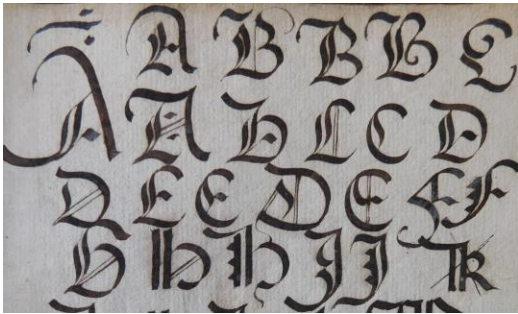 A A B B B C
A B C C D
D E E D E F F
G H H I I K